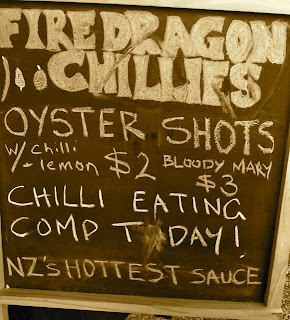 FIRE DRAGON
CHILLIES
OYSTER SHOTS
w/ chilli
/- lemon $2 BLOODY MARY
$3
CHILLI EATING
COMP TODAY!
NZ'S HOTTEST SAUCE